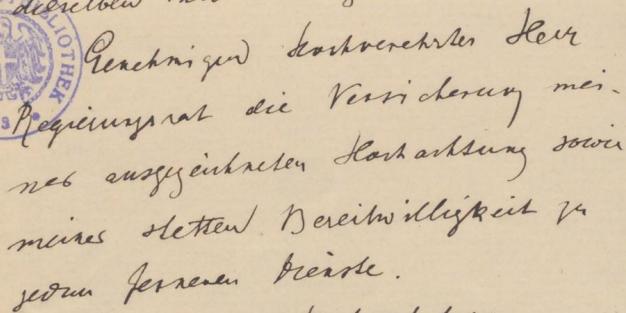 dieselben
Genehmigen Hochverehrter Herr
Regierungsrat die Versicherung mei-
ner ausgezeichneten Hochachtung sowie
meiner steten Bereitwilligkeit zu
jedem ferneren Dienste.
BIBLIOTHEK